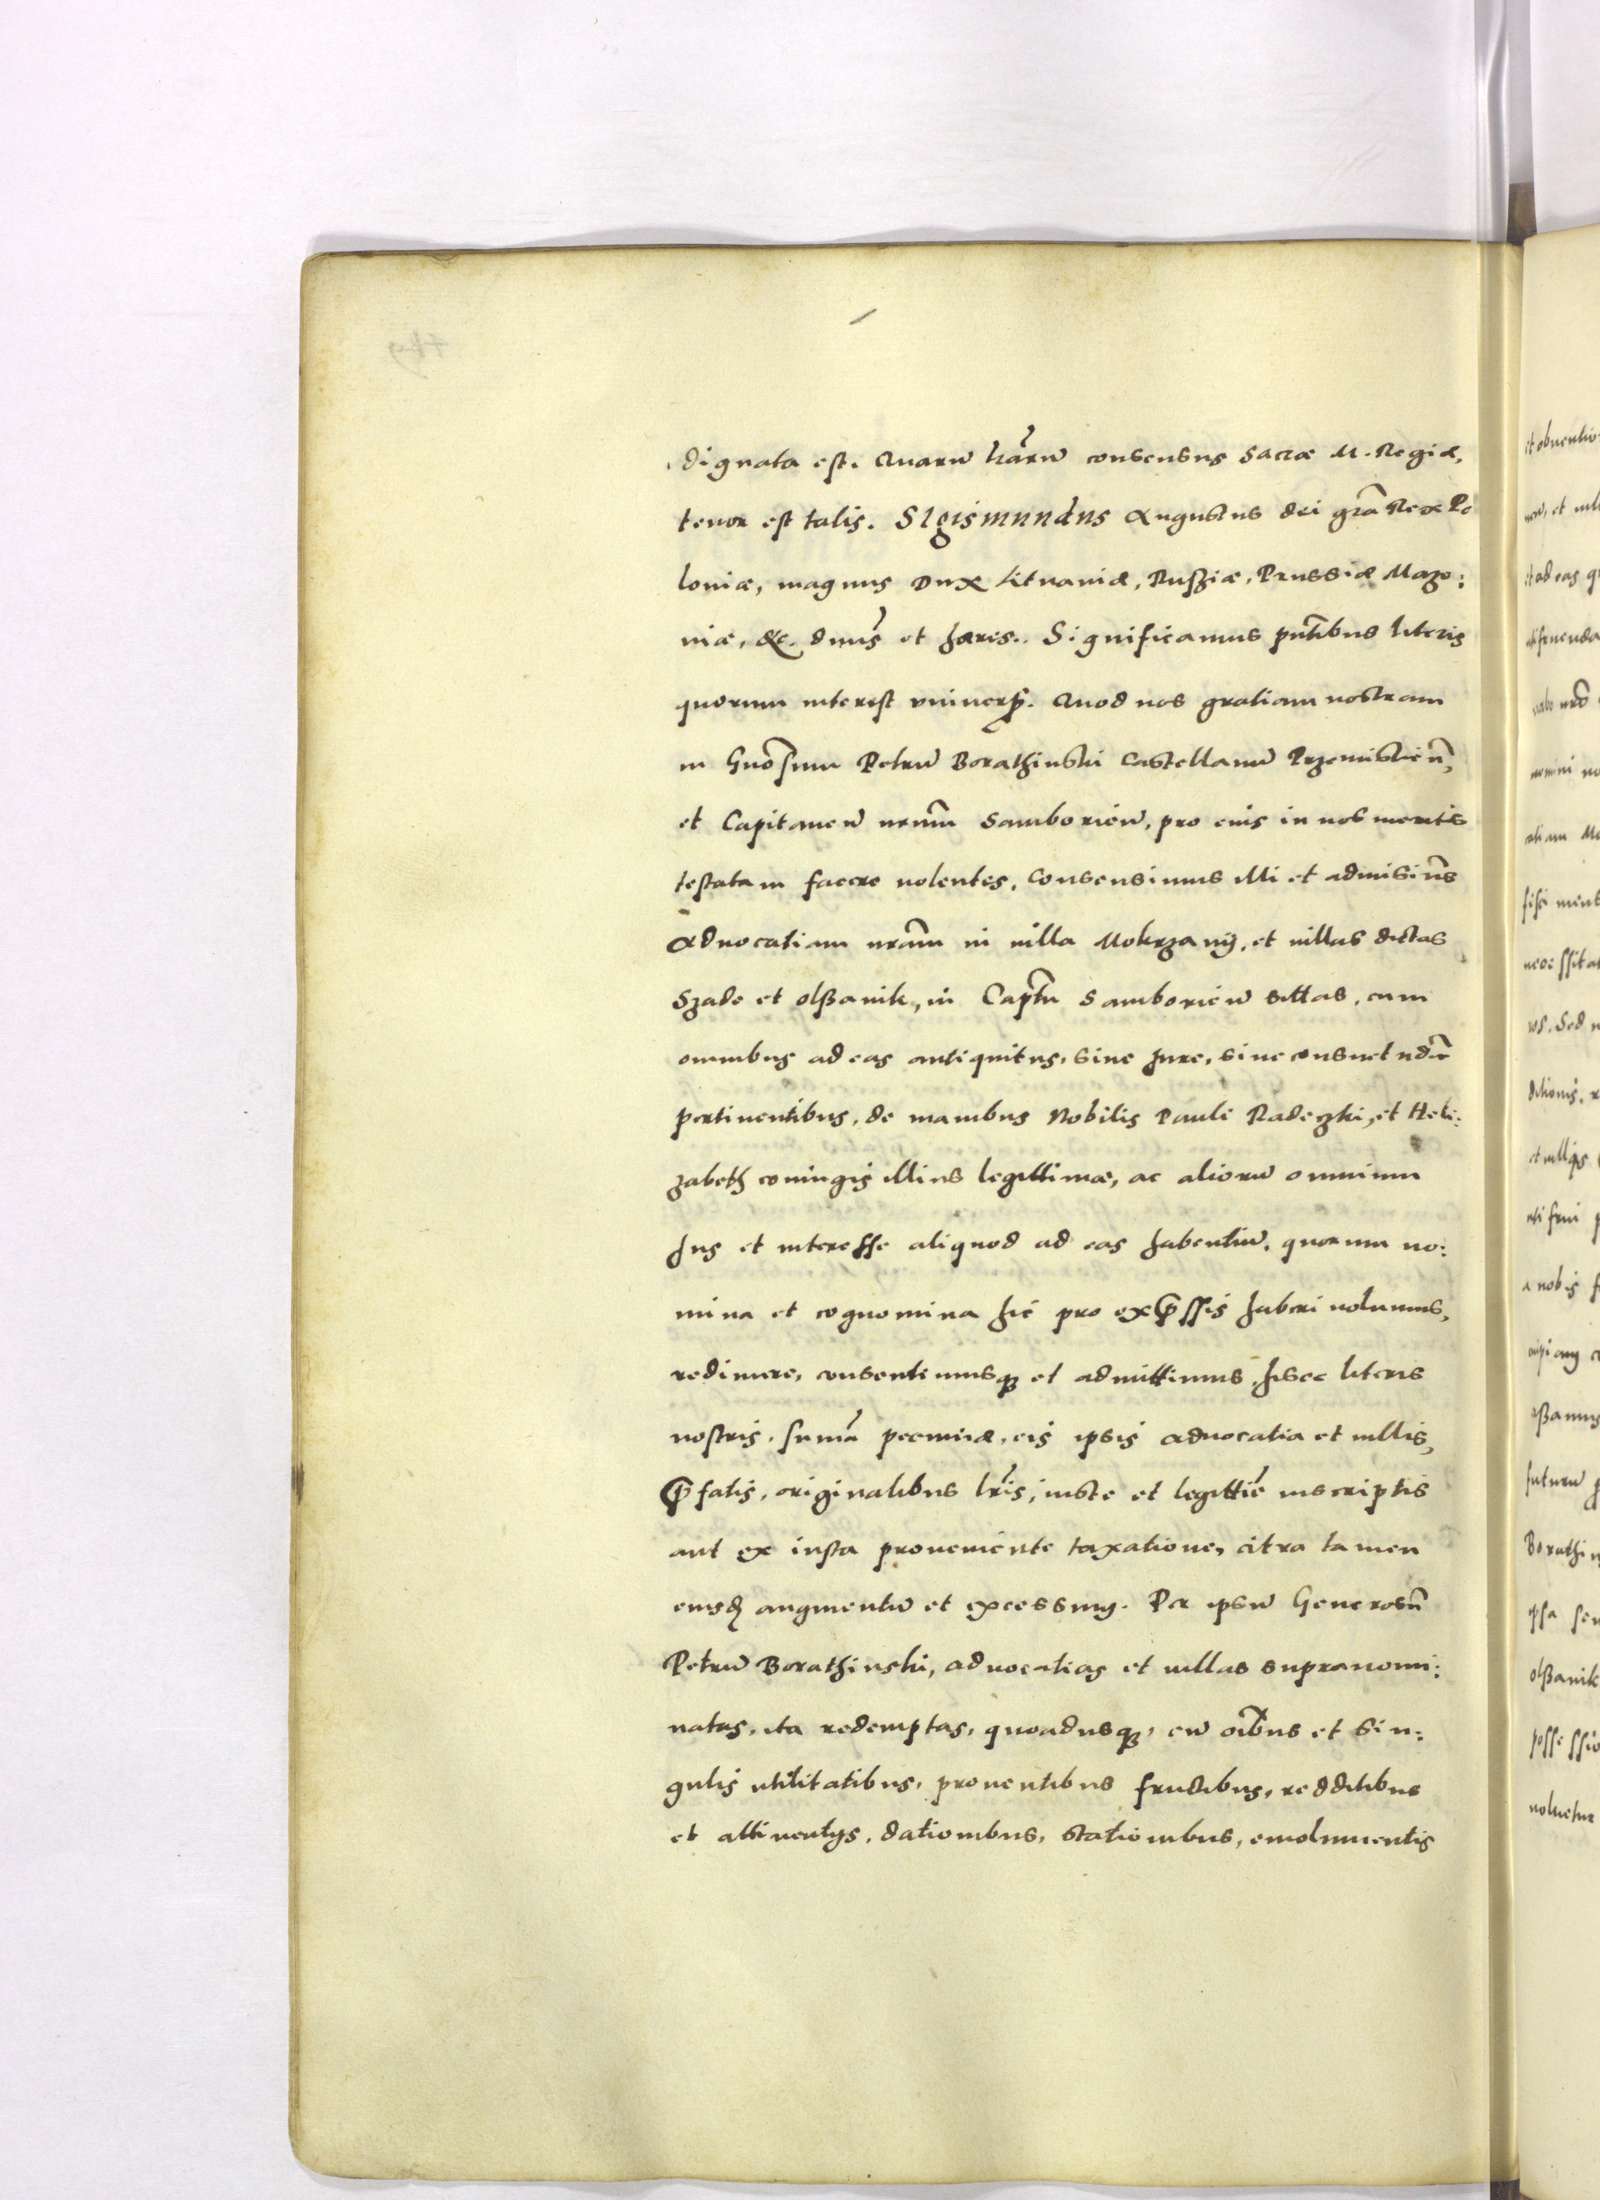 dignata est. Quarũ lrãrũ consensus Sacræ M. Regiæ,
tenor est talis. SIgismundus Augustus dei grã Rex Po
loniæ, magnus Dux Lituaniæ, Rusziæ, Prussiæ Mazo:
niæ, &c. dnus et hæres. Significamus pntibus literis
quorum interest vniversis. Quod nos gratiam nostram
in Gnosum Petrũ Borathinski Castellanũ Przemislień,
et Capitaneũ nrum Samborieñ, pro eius in nos meritis
testatam facere uolentes, consensimus illi et admisimus
Aduocatiam nram in uilla Mokrzany, et uillas dictas
Szade et olßanik, in Captu Samborieñ sittas, cum
omnibus ad eas antiquitus, siue Jure, siue consuetudie
pertinentibus, de manibus Nobilis Pauli Radeczki, et Heli:
zabeth coniugis illius legittimæ, ac aliorũ omnium
Jus et interesse aliquod ad eas habentiũ, quorum no:
mina et cognomina hic pro exp̃ssis haberi uolumus,
redimere, consentimusq; et admittimus hisce literis
nostris, sum̃a pecuniæ, eis ipsis aduocatia et uillis,
p̃fatis, originalibus lris, iuste et legittie inscriptis
aut ex iusta proueniente taxatione, citra tamen
eiusd augmentũ et excessum. Per ipsũ Generosũ
Petrũ Borathinski, aduocatias et uillas supranomi:
natas, ita redemptas, quoadusq;, cũ oibus et sin:
gulis utilitatibus, prouentibus fructibus, redditibus
et attinentijs, dationibus, stationibus, emolumentis